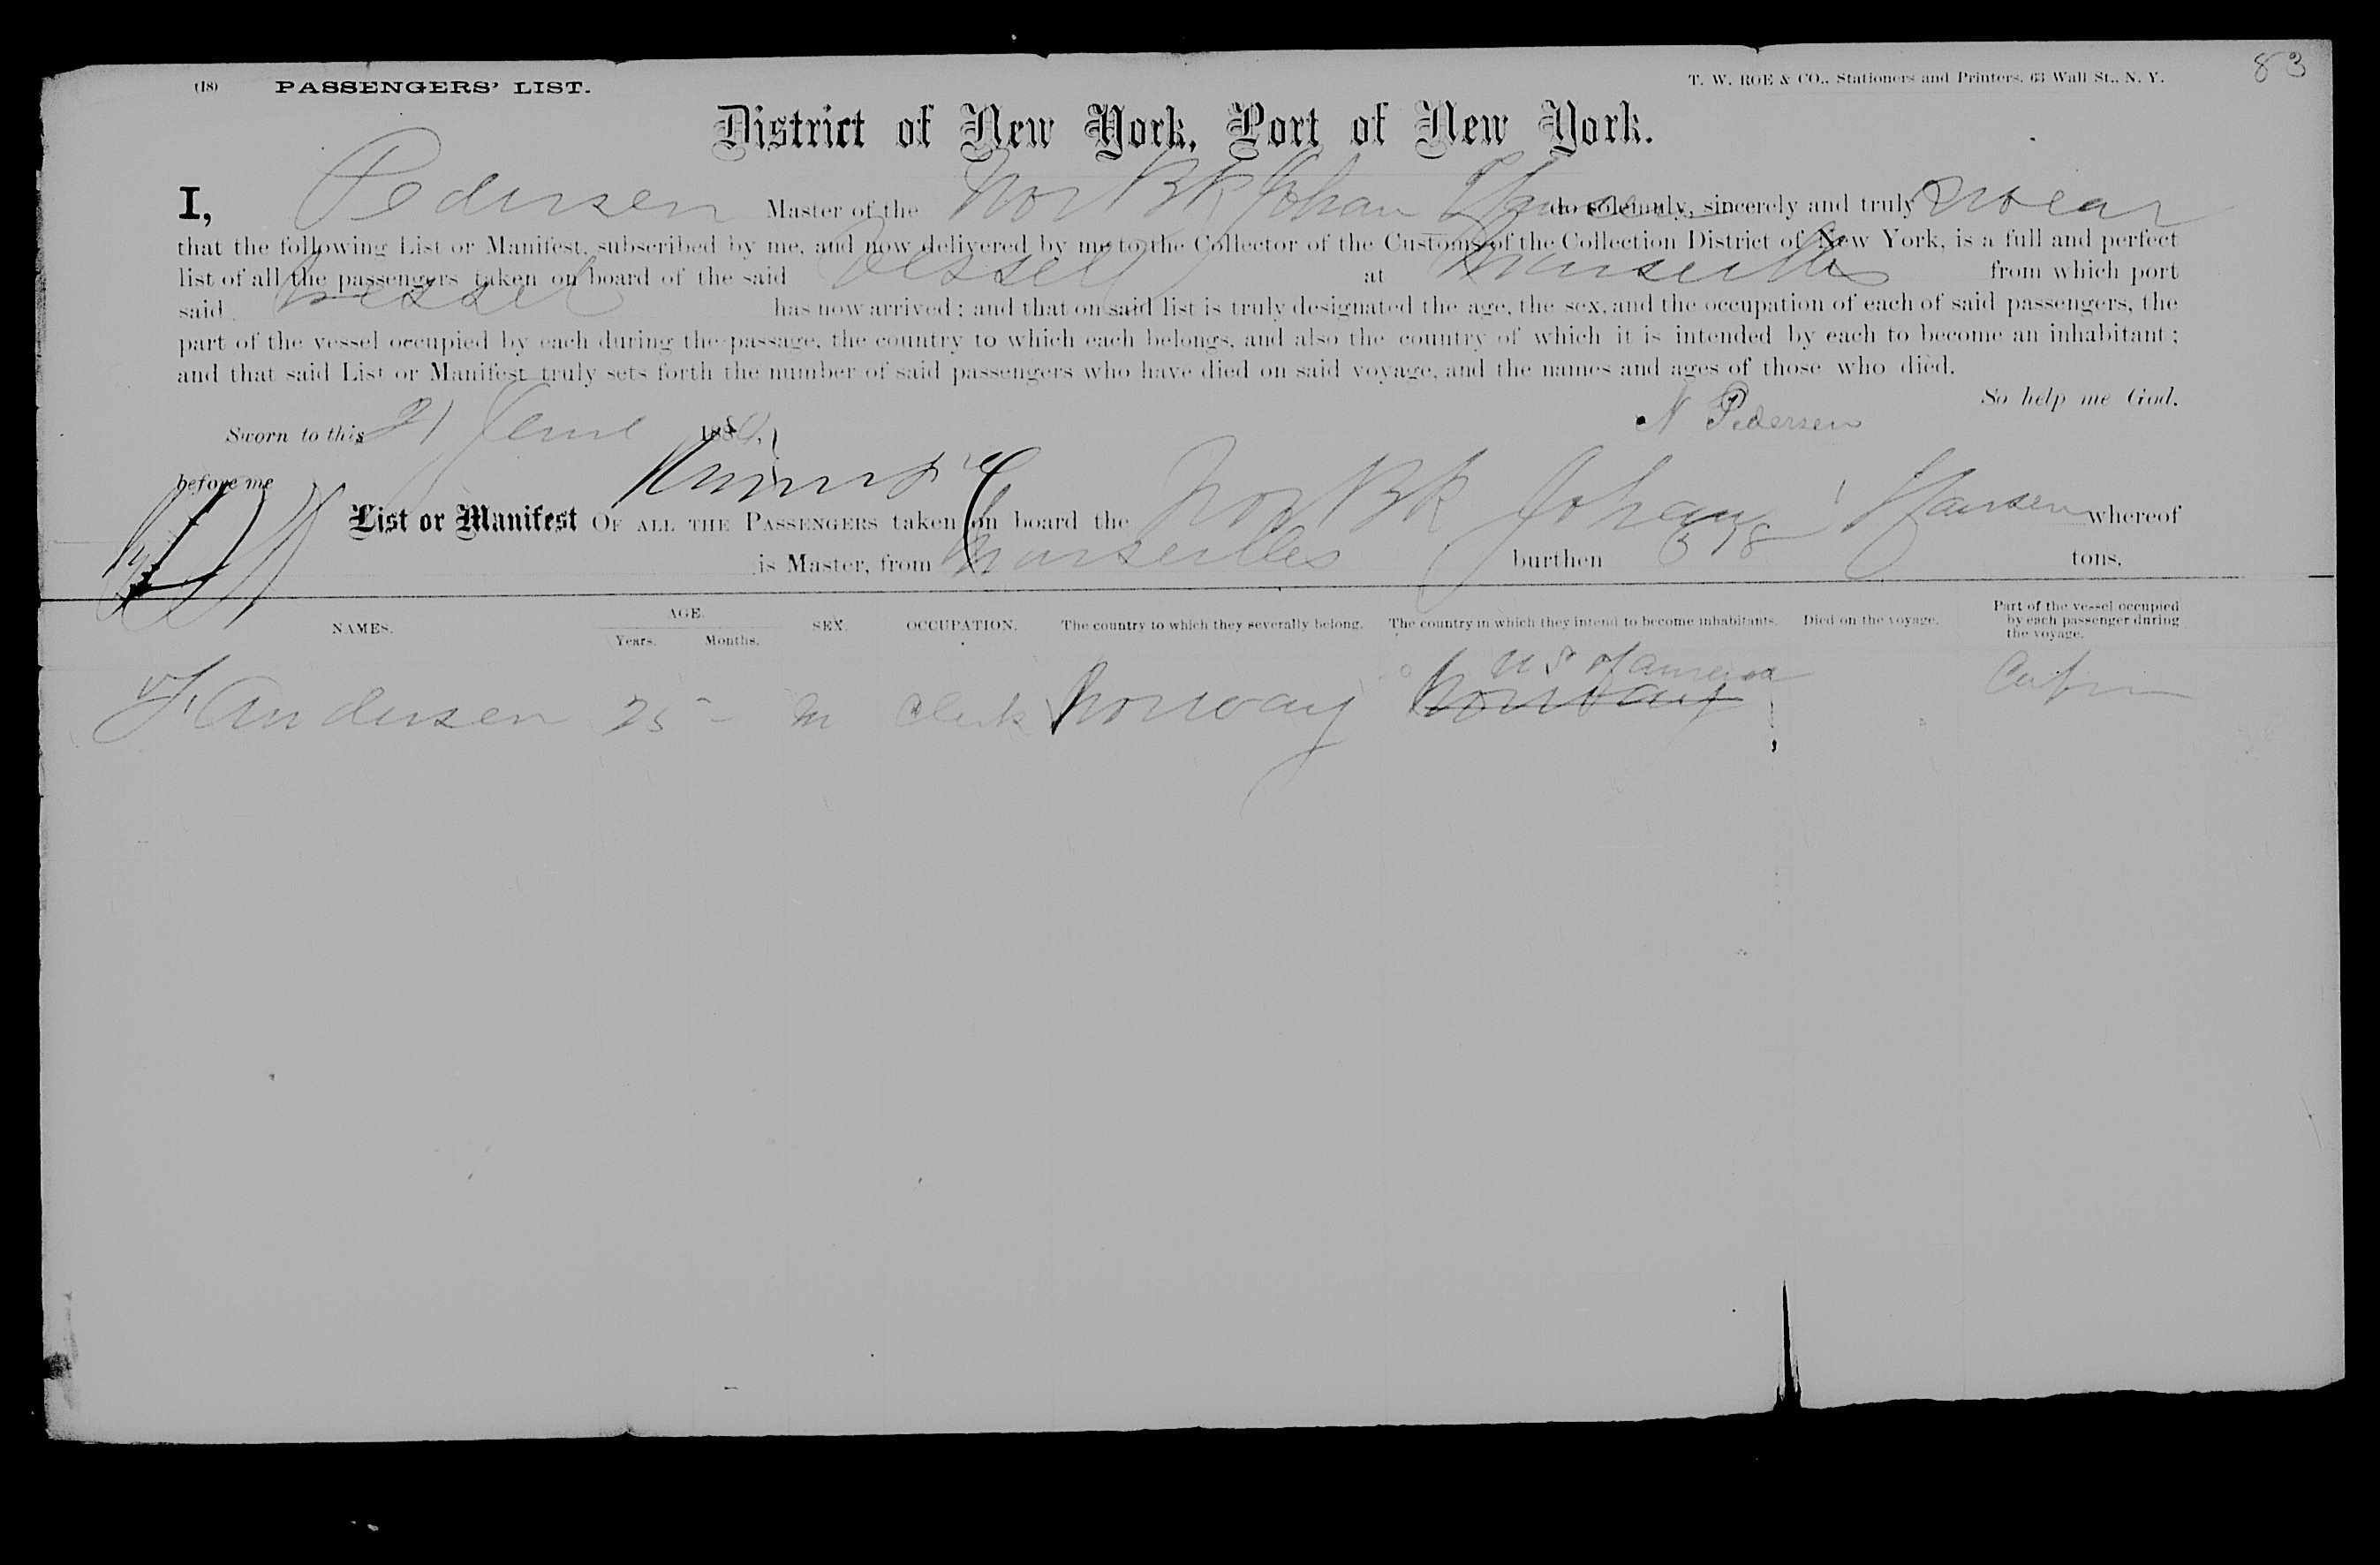 (18) PASSENGERS' LIST. T. W. ROE & CO., Stationers and Printers, 63 Wall St., N. Y. 83
District of New York, Port of New York.
I, Pedersen Master of the Nor Bk Johan Hansen do solemnly, sincerely and truly swear
that the following List or Manifest, subscribed by me, and now delivered by me to the Collector of the Customs of the Collection District of New York, is a full and perfect
list of all the passengers taken on board of the said Vessel at Marseilles from which port
said vessel has now arrived; and that on said list is truly designated the age, the sex, and the occupation of each of said passengers, the
part of the vessel occupied by each during the passage, the country to which each belongs, and also the country of which it is intended by each to become an inhabitant;
and that said List or Manifest truly sets forth the number of said passengers who have died on said voyage, and the names and ages of those who died.
So help me God.
Sworn to this 21 June 1880, N Pedersen
before me
List or Manifest OF ALL THE PASSENGERS taken on board the Nor Bk Johan Hansen whereof
is Master, from Marseilles burthen 578 tons.
NAMES. AGE. Years. Months. SEX. OCCUPATION. The country to which they severally belong. The country in which they intend to become inhabitants. Died on the voyage. Part of the vessel occupied by each passenger during the voyage.
U S of America
F. Andersen 25 - M Clerk Norway Norway Cabin